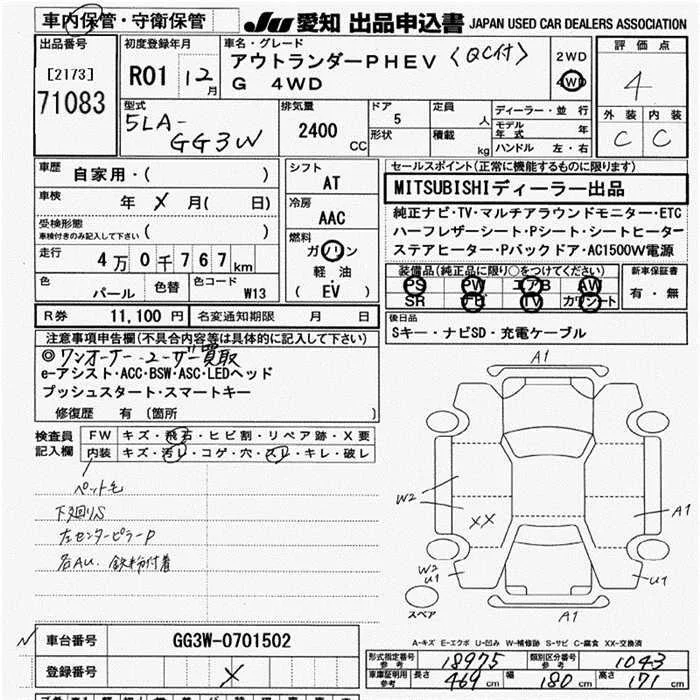 車内保管・守衛保管
JU 愛知 出品申込書 JAPAN USED CAR DEALERS ASSOCIATION
出品番号
[2173]
71083
初度登録年月
R01 12月
車名・グレード
アウトランダーPHEV 〈QC付〉
G 4WD
2WD
4WD
評価点
4
外装 内装
C C
型式
5LA-
GG3W
排気量
2400 CC
ドア
5
形状
定員
人
積載
kg
ディーラー・並行
モデル年式 年
ハンドル 左・右
車歴
自家用・( )
車検
年 X 月( 日)
受検形態
車検付きのみ記入して下さい ( )
走行
4万0千767km
色
パール
色替
色コード
W13
シフト
AT
冷房
AAC
燃料
ガソリン
軽油・
( EV )
セールスポイント(正常に機能するものに限ります)
MITSUBISHIディーラー出品
純正ナビ・TV・マルチアラウンドモニター・ETC
ハーフレザーシート・Pシート・シートヒーター
ステアヒーター・Pバックドア・AC1500W電源
装備品(純正品に限り○をつけてください)
PS PW エアB AW
SR ナビ TV カワシート
新車保証書
有・無
R券 11,100 円 名変通知期限 月 日
後日品
Sキー・ナビSD・充電ケーブル
注意事項申告欄(不具合内容等は具体的に記入して下さい)
◎ワンオーナー ユーザー買取
e-アシスト・ACC・BSW・ASC・LEDヘッド
プッシュスタート・スマートキー
修復歴 有 (箇所 )
検査員記入欄
FW キズ・飛石・ヒビ割・リペア跡・X要
内装 キズ・汚レ・コゲ・穴・スレ・キレ・破レ
ペット毛
下廻りS
左センターピラーP
各AU、鉄粉付着
A1
W2
XX
A1
W2
U1
U1
A1
スペア
A-キズ E-エクボ U-凹み W-補修跡 S-サビ C-腐食 XX-交換済
車台番号 GG3W-0701502
登録番号 X
形式指定番号 参考 18975
類別区分番号 参考 1043
車庫証明用 参考 長さ 469 cm 幅 180 cm 高さ 171 cm